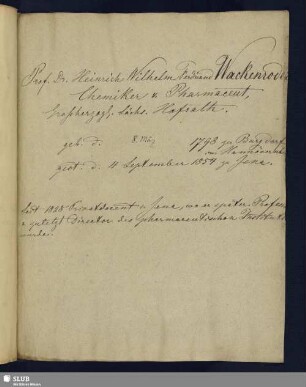 Prof. Dr. Heinrich Wilhelm Ferdinand Wackenroder
Chemiker u. Pharmaceut,
Großherzogl. Sächs. Hofrath.
geb. d. 8. März 1798 zu Burgdorf
im Hannöver
gest. d. 4 September 1854 zu Jena.
Seit 1828 Privatdocent in Jena, wo er später Professor
u. zuletzt Director des pharmaceutischen Instituts
wurde.
SLUB